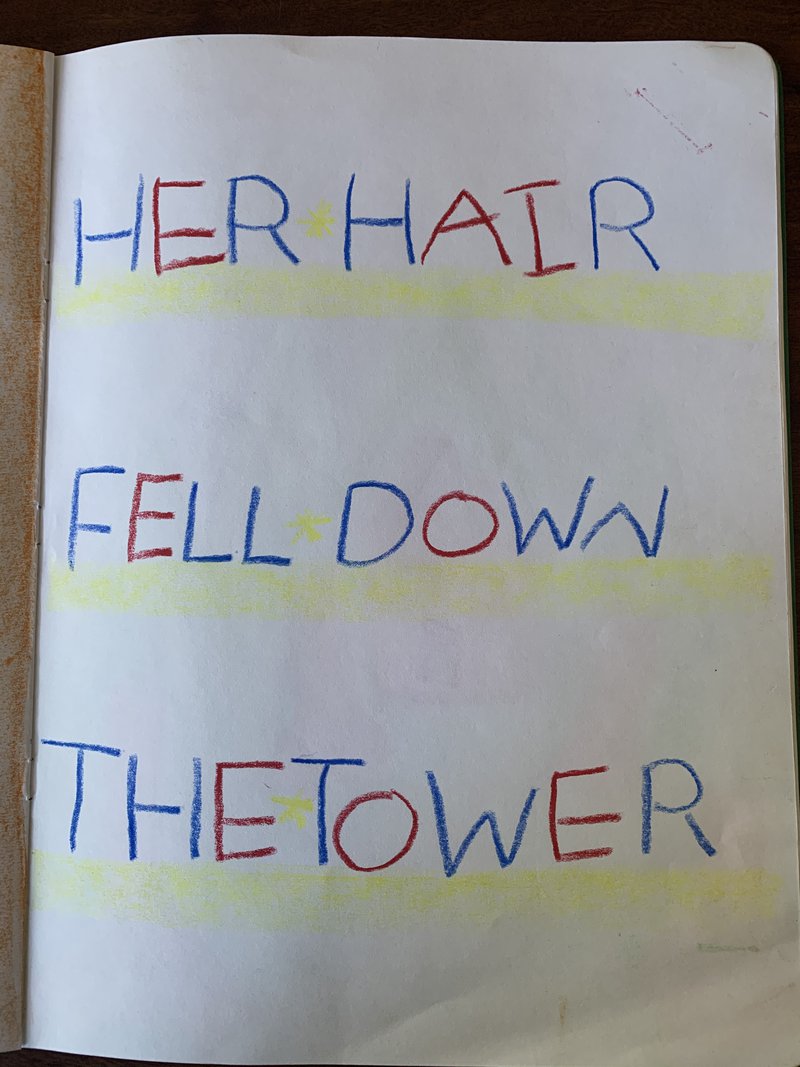 HER * HAIR
FELL * DOWN
THE * TOWER